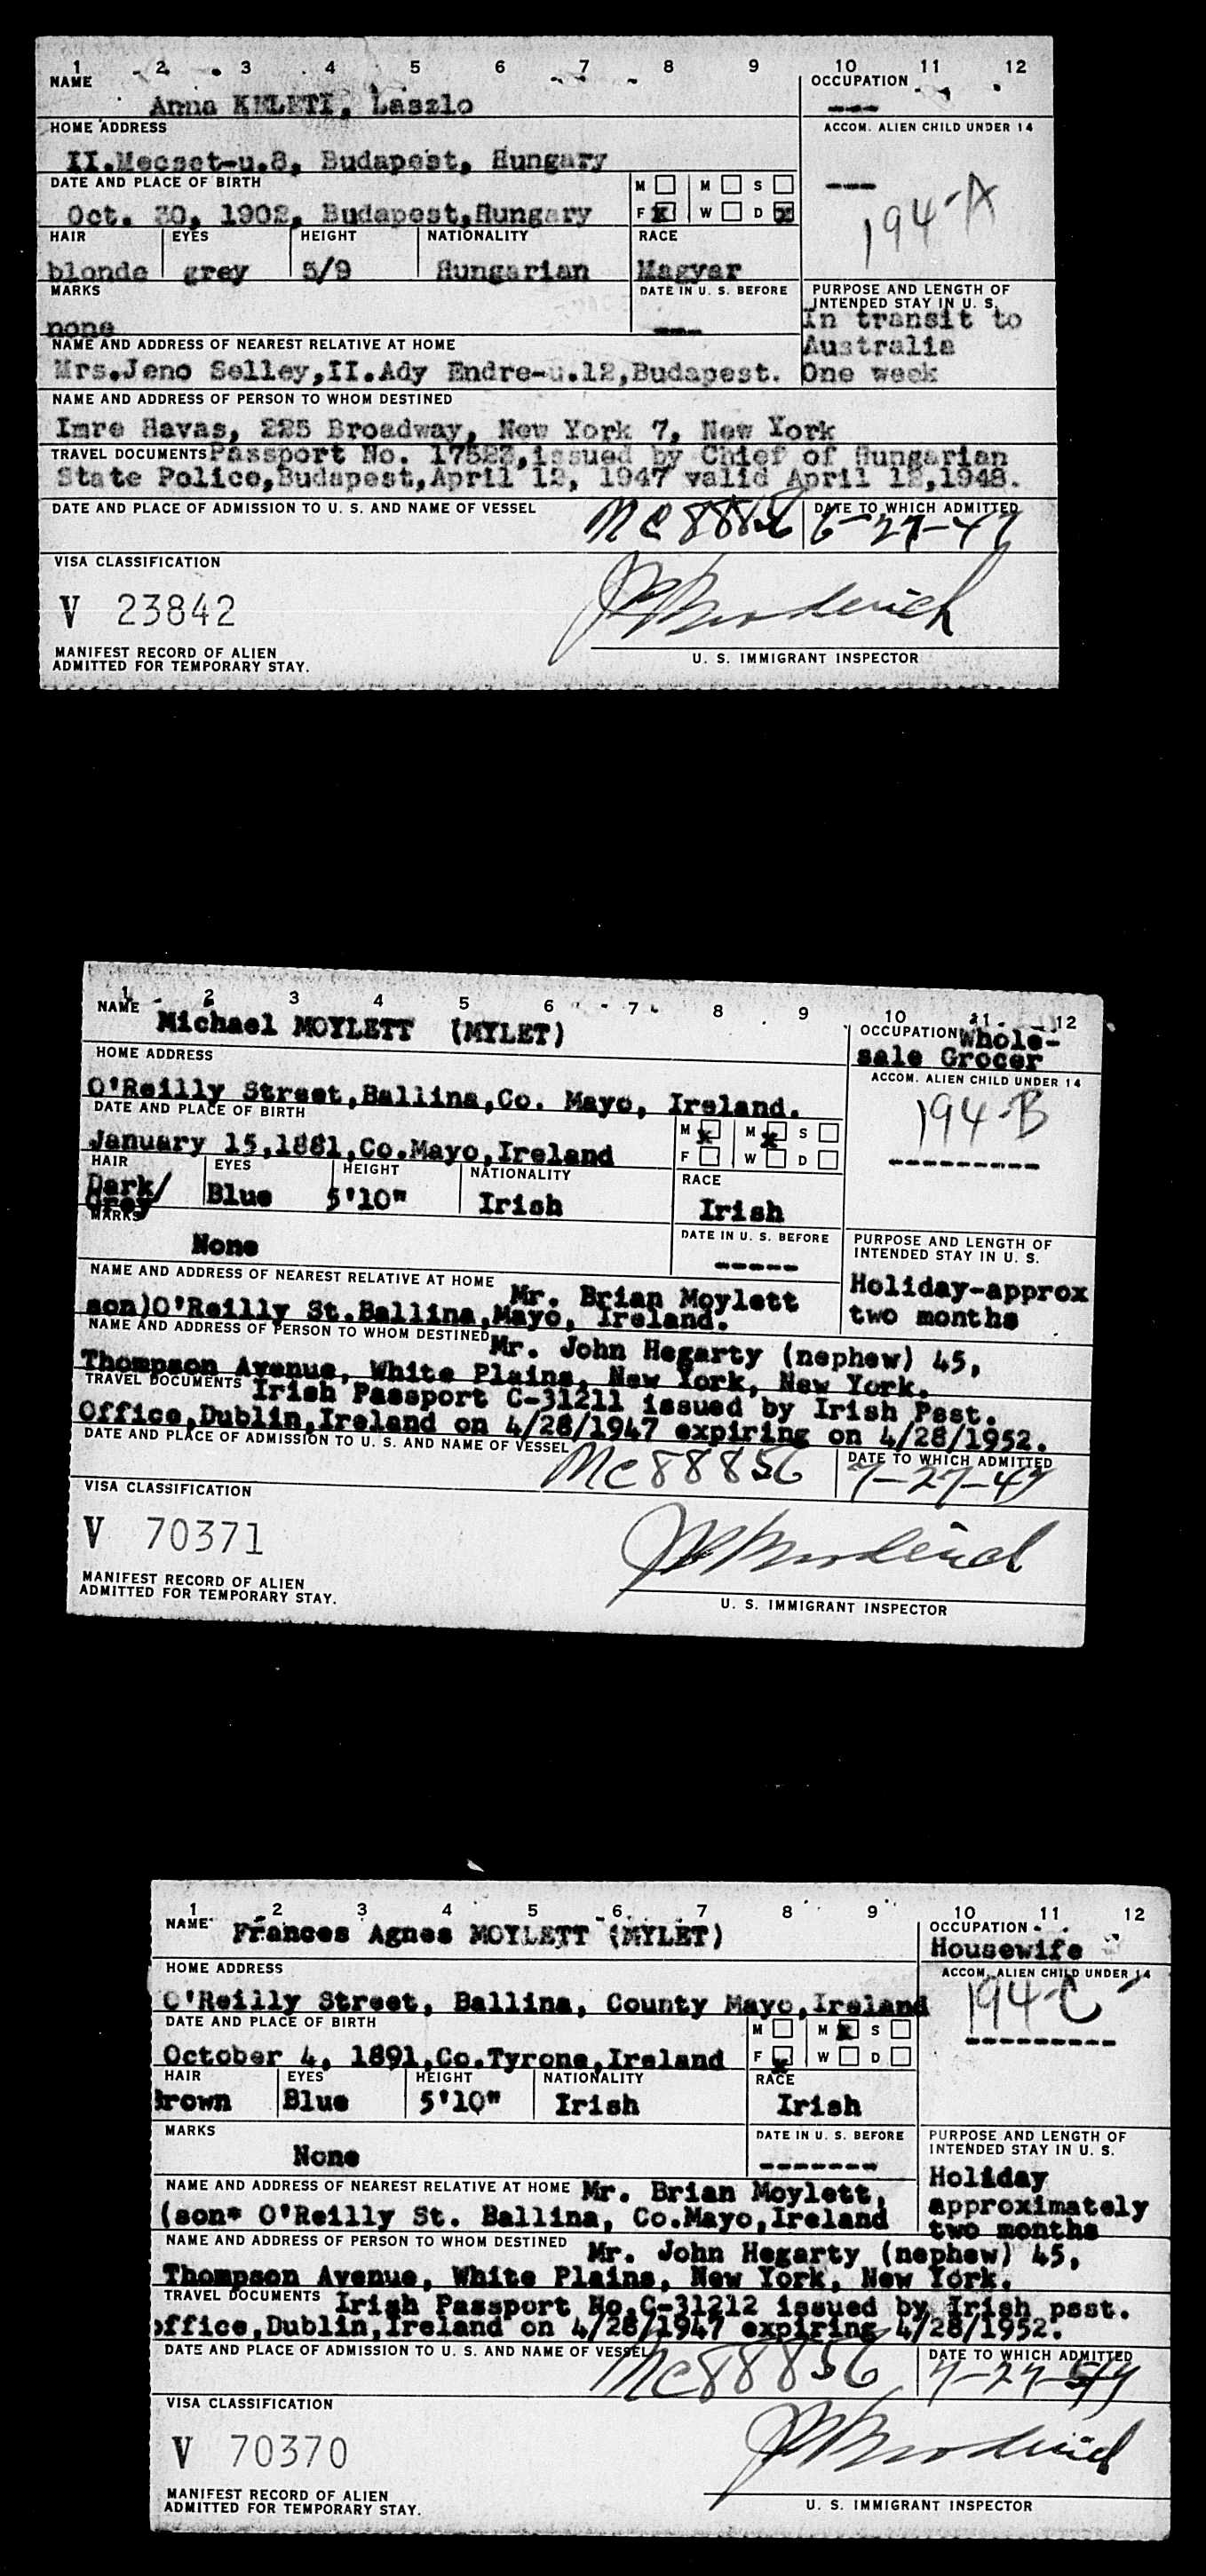 1 2 3 4 5 6 7 8 9 10 11 12
NAME OCCUPATION
Anna KELETI, Laszlo ---
HOME ADDRESS ACCOM. ALIEN CHILD UNDER 14
II.Mecset-u.8, Budapest, Hungary
DATE AND PLACE OF BIRTH M M S ---
Oct. 30, 1902, Budapest,Hungary F x W D x 194-A
HAIR EYES HEIGHT NATIONALITY RACE
blonde grey 5/9 Hungarian Magyar
MARKS DATE IN U. S. BEFORE PURPOSE AND LENGTH OF
INTENDED STAY IN U. S.
none --- In transit to
NAME AND ADDRESS OF NEAREST RELATIVE AT HOME Australia
Mrs.Jeno Selley,II.Ady Endre-u.12,Budapest. One week
NAME AND ADDRESS OF PERSON TO WHOM DESTINED
Imre Havas, 225 Broadway, New York 7, New York
TRAVEL DOCUMENTS Passport No. 17523,issued by Chief of Hungarian
State Police,Budapest,April 12, 1947 valid April 12,1948.
DATE AND PLACE OF ADMISSION TO U. S. AND NAME OF VESSEL DATE TO WHICH ADMITTED
MC 88856 6-27-47
VISA CLASSIFICATION
V 23842 Broderick
MANIFEST RECORD OF ALIEN
ADMITTED FOR TEMPORARY STAY. U. S. IMMIGRANT INSPECTOR
1 2 3 4 5 6 7 8 9 10 11 12
NAME Michael MOYLETT (MYLET) OCCUPATION Whole-
sale Grocer
HOME ADDRESS ACCOM. ALIEN CHILD UNDER 14
O'Reilly Street,Ballina,Co. Mayo, Ireland. 194-B
DATE AND PLACE OF BIRTH M x M x S
January 15,1881,Co.Mayo,Ireland F W D ---------
HAIR EYES HEIGHT NATIONALITY RACE
Dark/
Grey Blue 5'10" Irish Irish
MARKS DATE IN U. S. BEFORE PURPOSE AND LENGTH OF
INTENDED STAY IN U. S.
None -----
NAME AND ADDRESS OF NEAREST RELATIVE AT HOME Mr. Brian Moylett Holiday-approx
son)O'Reilly St.Ballina,Mayo, Ireland. two months
NAME AND ADDRESS OF PERSON TO WHOM DESTINED Mr. John Hegarty (nephew) 45,
Thompson Avenue, White Plains, New York, New York.
TRAVEL DOCUMENTS Irish Passport C-31211 issued by Irish Psst.
Office,Dublin,Ireland on 4/28/1947 expiring on 4/28/1952.
DATE AND PLACE OF ADMISSION TO U. S. AND NAME OF VESSEL DATE TO WHICH ADMITTED
MC 88856 7-27-47
VISA CLASSIFICATION
V 70371 Broderick
MANIFEST RECORD OF ALIEN
ADMITTED FOR TEMPORARY STAY. U. S. IMMIGRANT INSPECTOR
1 2 3 4 5 6 7 8 9 10 11 12
NAME Frances Agnes MOYLETT (MYLET) OCCUPATION
Housewife
HOME ADDRESS ACCOM. ALIEN CHILD UNDER 14
O'Reilly Street, Ballina, County Mayo,Ireland 194-C
DATE AND PLACE OF BIRTH M M x S ---------
October 4, 1891,Co.Tyrone,Ireland F x W D
HAIR EYES HEIGHT NATIONALITY RACE
Brown Blue 5'10" Irish Irish
MARKS DATE IN U. S. BEFORE PURPOSE AND LENGTH OF
INTENDED STAY IN U. S.
None -------
NAME AND ADDRESS OF NEAREST RELATIVE AT HOME Mr. Brian Moylett, Holiday
(son* O'Reilly St. Ballina, Co.Mayo,Ireland approximately
two months
NAME AND ADDRESS OF PERSON TO WHOM DESTINED Mr. John Hegarty (nephew) 45,
Thompson Avenue, White Plains, New York, New York.
TRAVEL DOCUMENTS Irish Passport No.C-31212 issued by Irish psst.
office,Dublin,Ireland on 4/28/1947 expiring 4/28/1952.
DATE AND PLACE OF ADMISSION TO U. S. AND NAME OF VESSEL DATE TO WHICH ADMITTED
MC 88856 7-27-47
VISA CLASSIFICATION
V 70370 Broderick
MANIFEST RECORD OF ALIEN
ADMITTED FOR TEMPORARY STAY. U. S. IMMIGRANT INSPECTOR